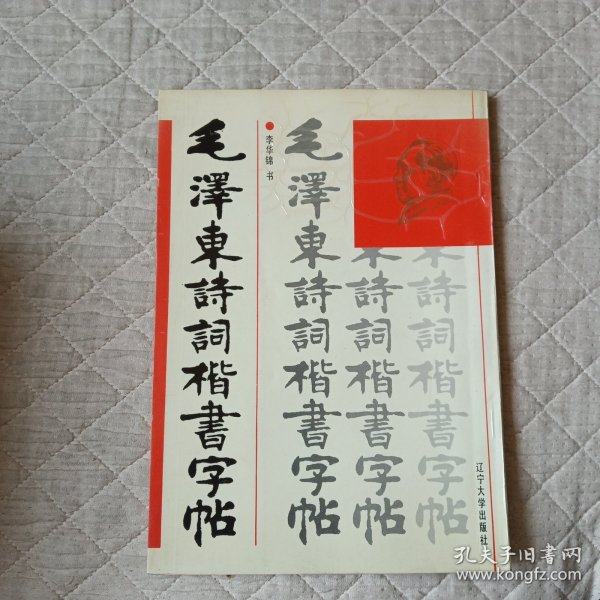 毛澤東詩詞楷書字帖
李华锦 书
毛澤東詩詞楷書字帖
東詩詞楷書字帖
東詩詞楷書字帖
辽宁大学出版社
孔夫子旧书网
www.kongfz.com